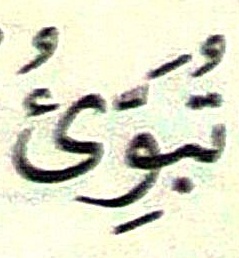 تُبَوِّئُ